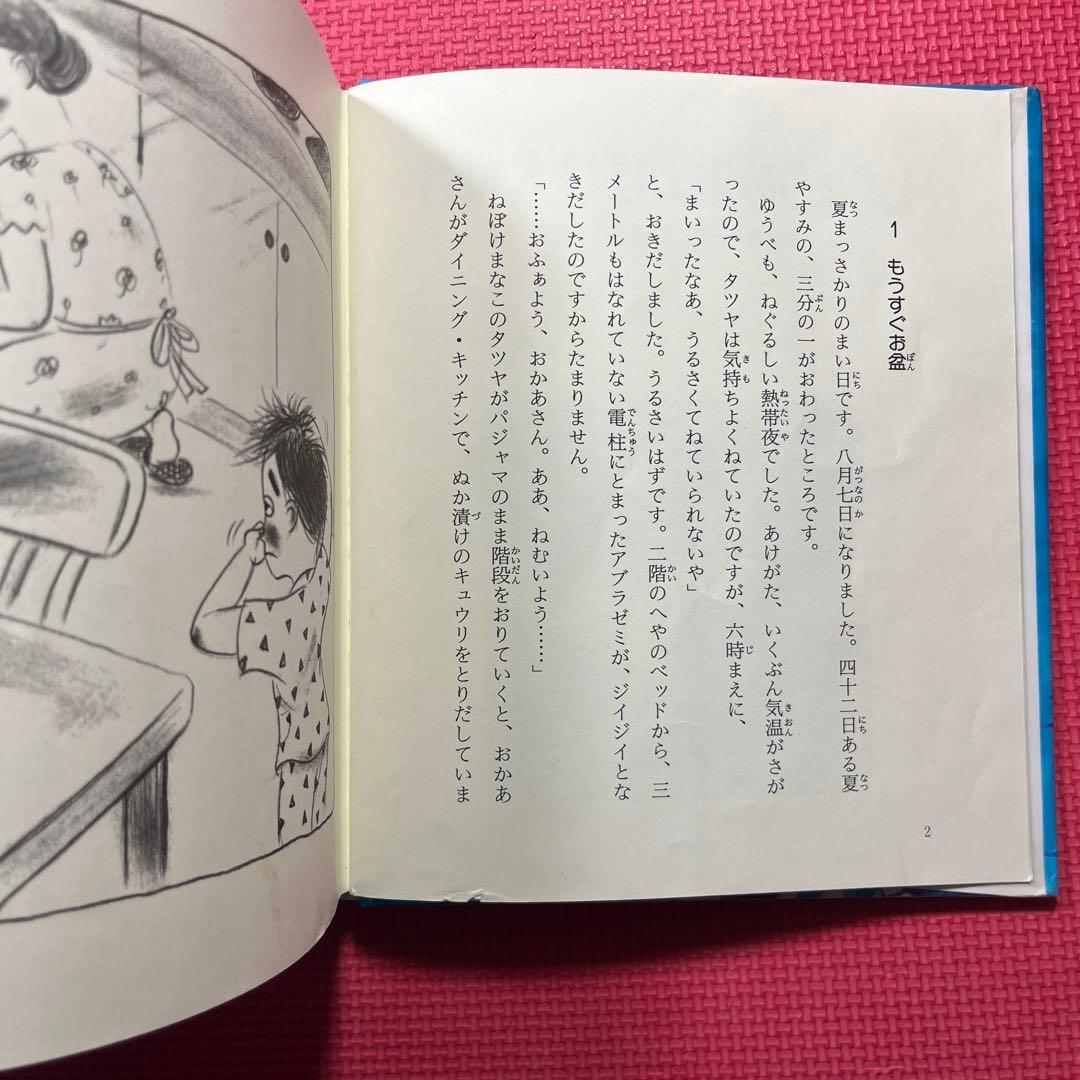 1 もうすぐお盆
夏まっさかりのまい日です。八月七日になりました。四十二日ある夏
やすみの、三分の一がおわったところです。
ゆうべも、ねぐるしい熱帯夜でした。あけがた、いくぶん気温がさが
ったので、タツヤは気持ちよくねていたのですが、六時まえに、
「まいったなあ、うるさくてねていられないや」
と、おきだしました。うるさいはずです。二階のへやのベッドから、三
メートルもはなれていない電柱にとまったアブラゼミが、ジイジイとな
きだしたのですからたまりません。
「……おふぁよう、おかあさん。ああ、ねむいよう……」
ねぼけまなこのタツヤがパジャマのまま階段をおりていくと、おかあ
さんがダイニング・キッチンで、ぬか漬けのキュウリをとりだしていま
2